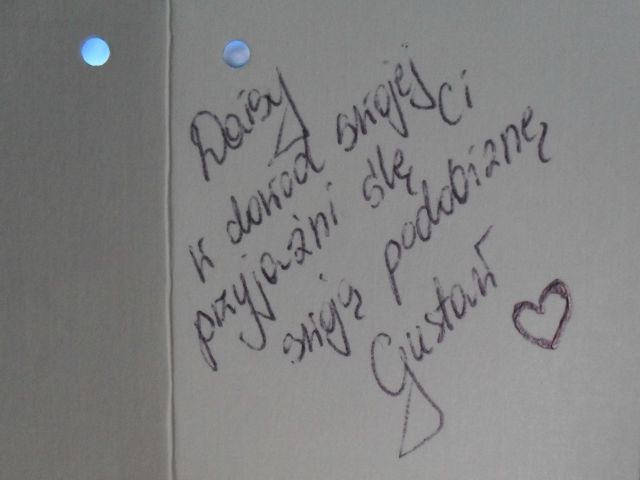 Daisy
w dowód swojej
przyjaźni ślę Ci
swoją podobiznę
Gustaw